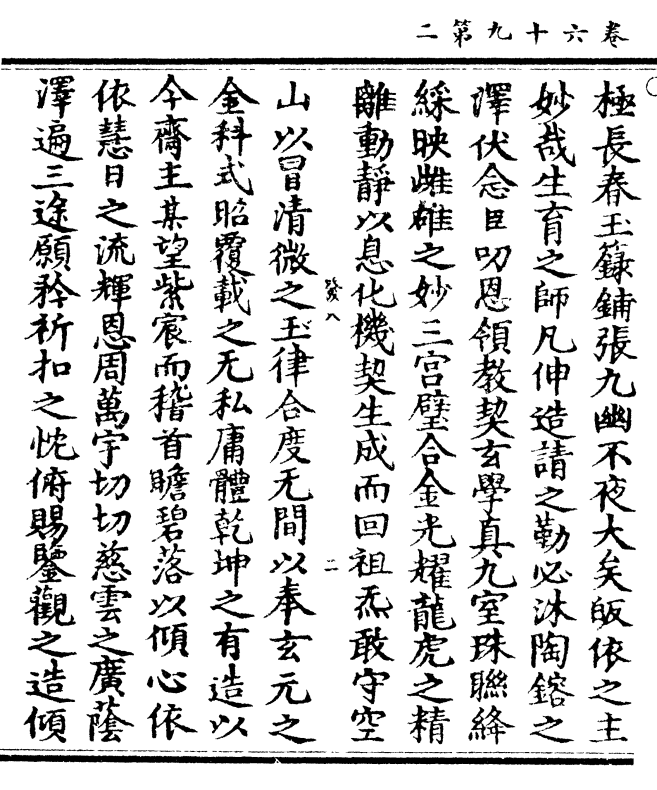 卷六十九第二
極長春玉籙鋪張九幽不夜大矣皈依之主
妙哉生育之師凡伸造請之勤必沐陶鎔之
澤伏念臣叨恩領教契玄學真九室珠聯絳
綵映雌雄之妙三宮璧合金光耀龍虎之精
離動靜以息化機契生成而回祖炁敢守空
發八
二
山以冒清微之玉律合度无間以奉玄元之
金科式昭覆載之无私庸體乾坤之有造以
今齋主某望紫宸而稽首瞻碧落以傾心依
依慧日之流輝恩周萬宇切切慈雲之廣蔭
澤遍三途願矜祈扣之忱俯賜鑒觀之造傾